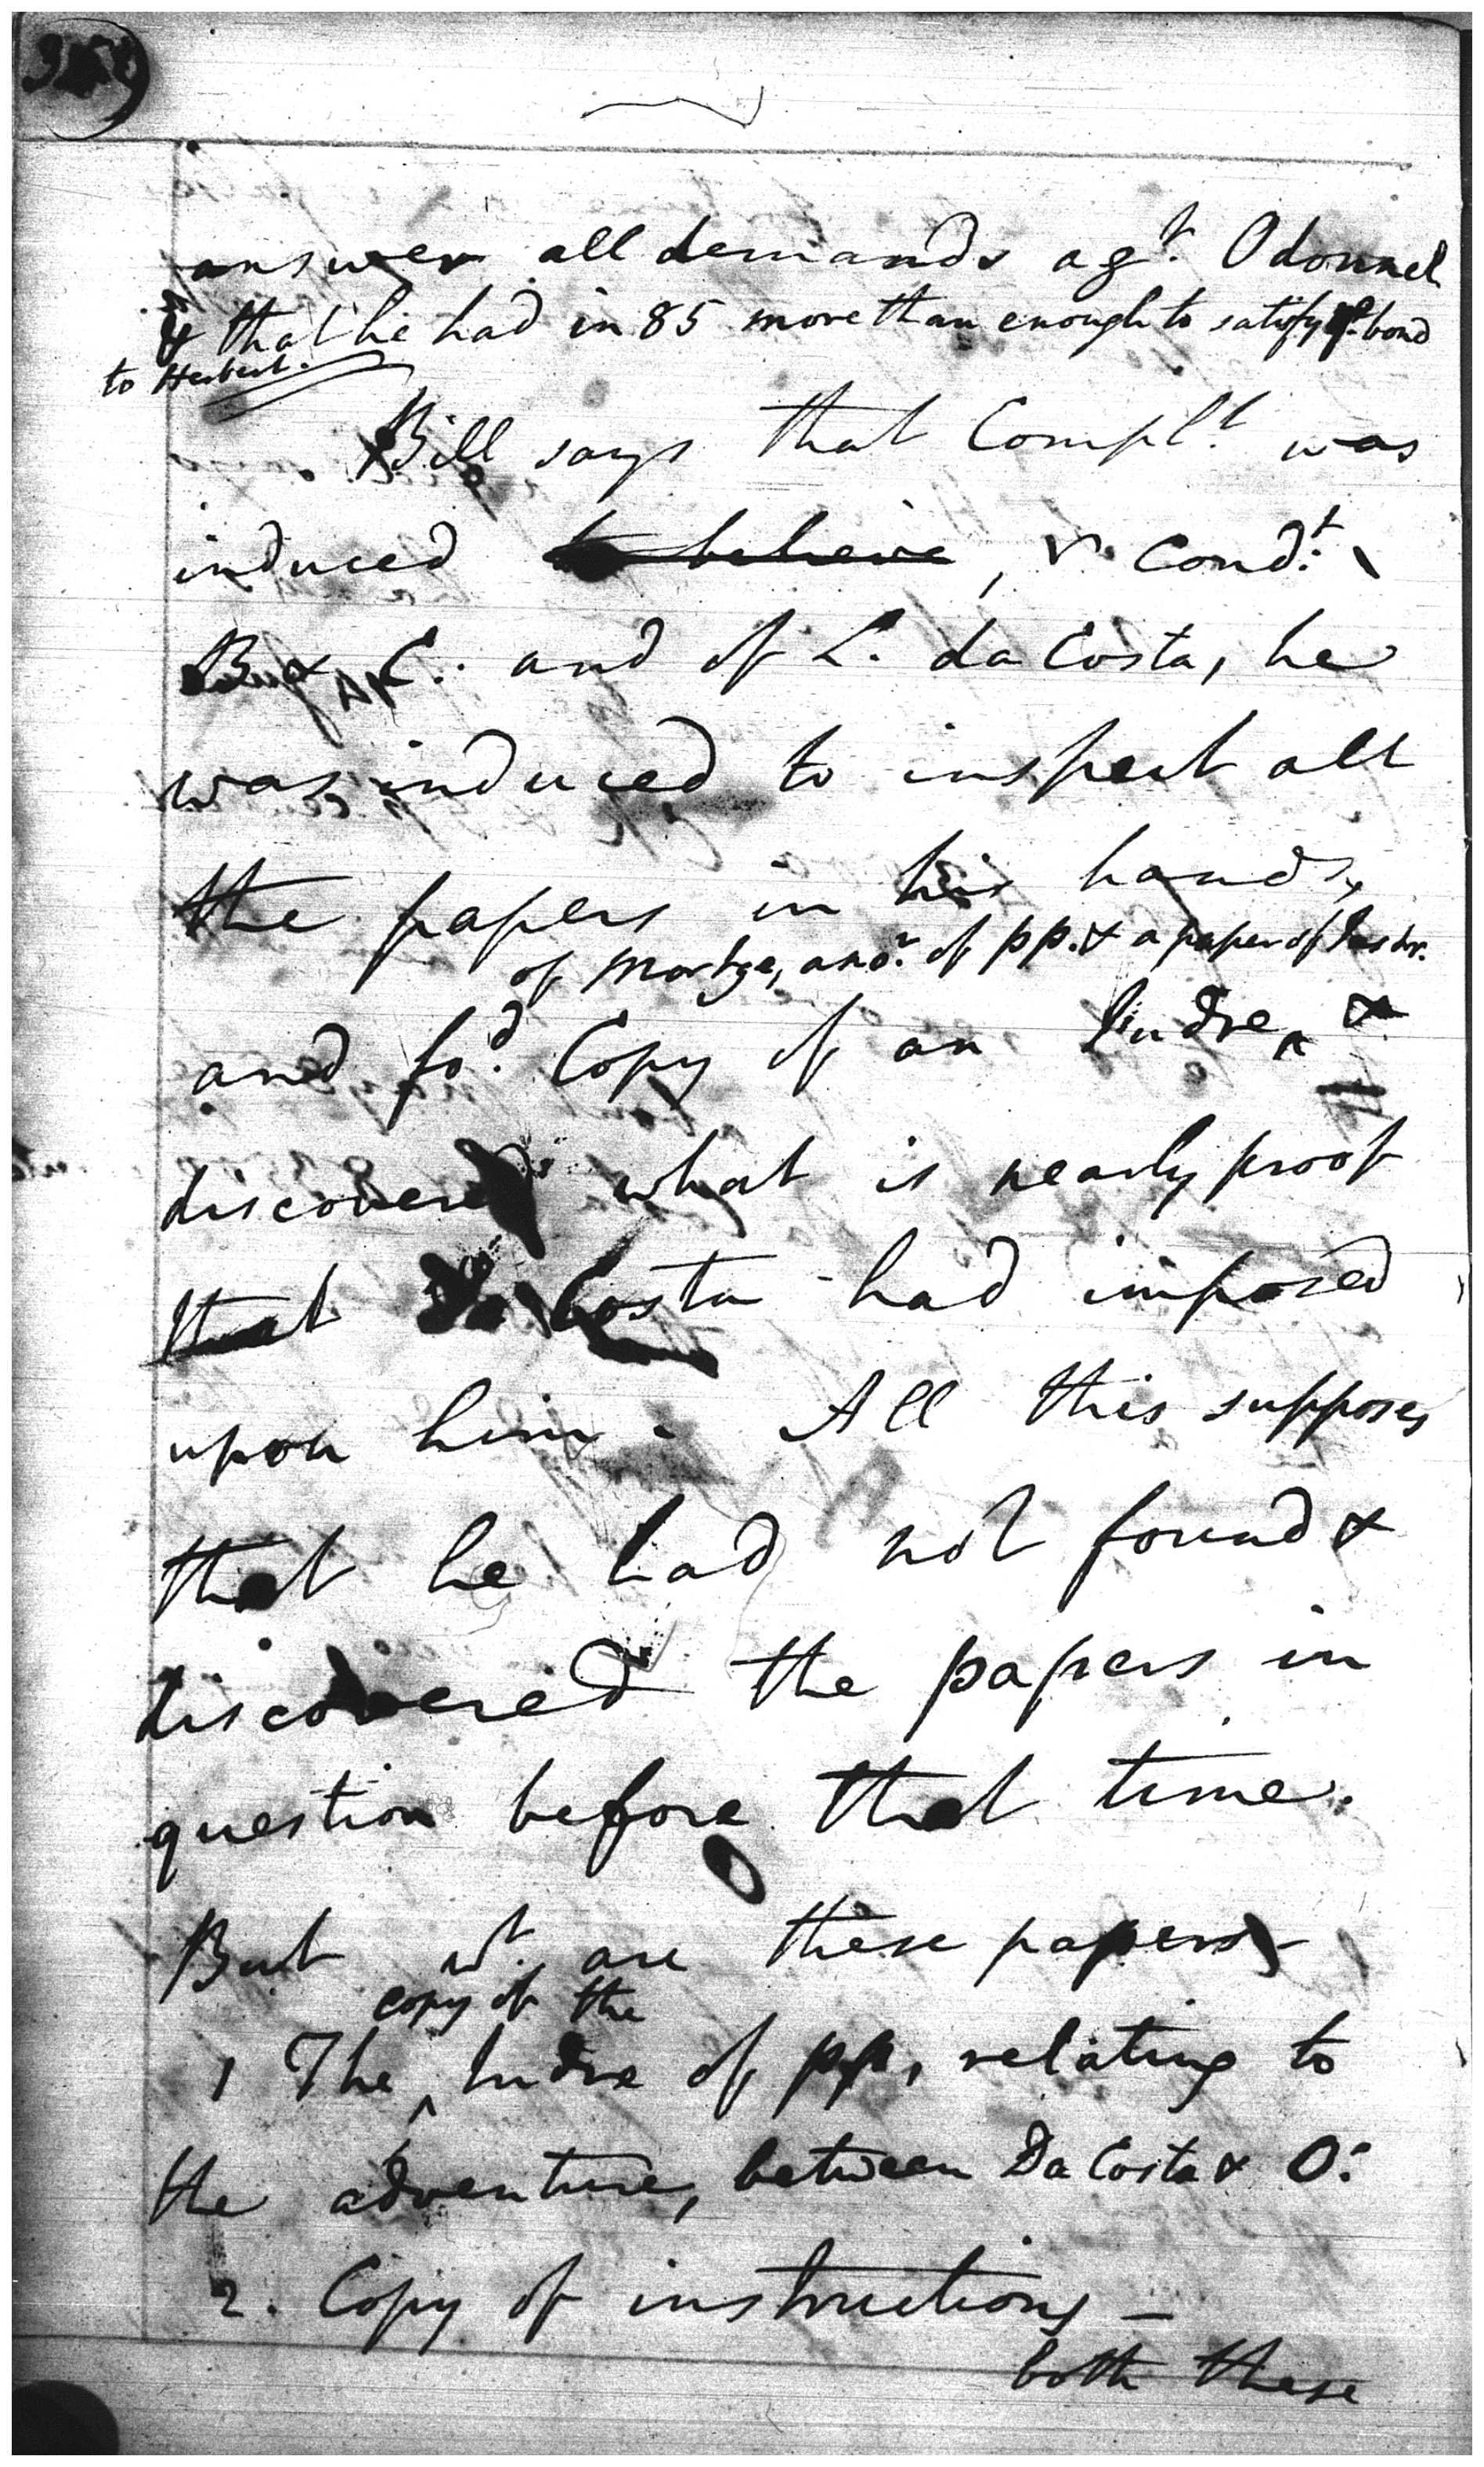 answer all demands agt. Odonnel
& that he had in 85 more than enough to satisfy bond
to Herbert.
Bill says that Complt. was
induced to believe, Condt.
C. and of L. da Costa, he
was induced to inspect all
the papers in his hands,
of Mortge, anor. of pp. & a paper of Instr.
and fod. Copy of an Indre &
discovered what is nearly proof
that Da Costa had imposed
upon him. All this supposes
that he had not found &
discovered the papers in
question before that time.
But wt. are these papers
copy of the
1 The Indre of pp, relating to
the adventure, between Da Costa & O.
2. Copy of instructions –
both these